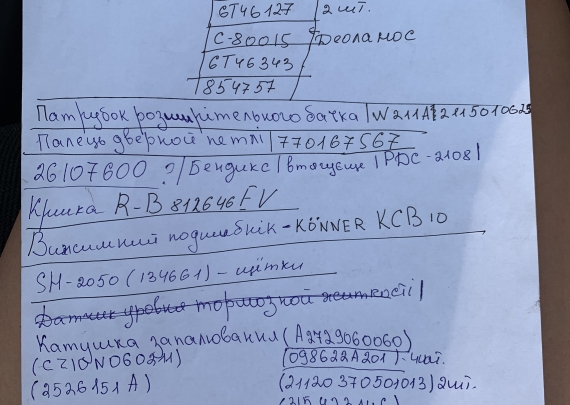 6T46127 2 шт.
C-80015 Деоланос
6T46343
854757
Патрубок розширітельного бачка | W211A 2115010625
Палець дверной петлі | 770167567
26107600 ? / Бендикс / втягующе | PDC-2108 |
Кришка R-B 812646FV
Вижимний подшибнік - KÖNNER KCB 10
SH-2050 (134661) - щітки
Датчик уровня тормозной житкості |
Катушка запалювання (A2729060060)
(098622A201) - чат.
(2526151A) (21120370501013) 2шт.